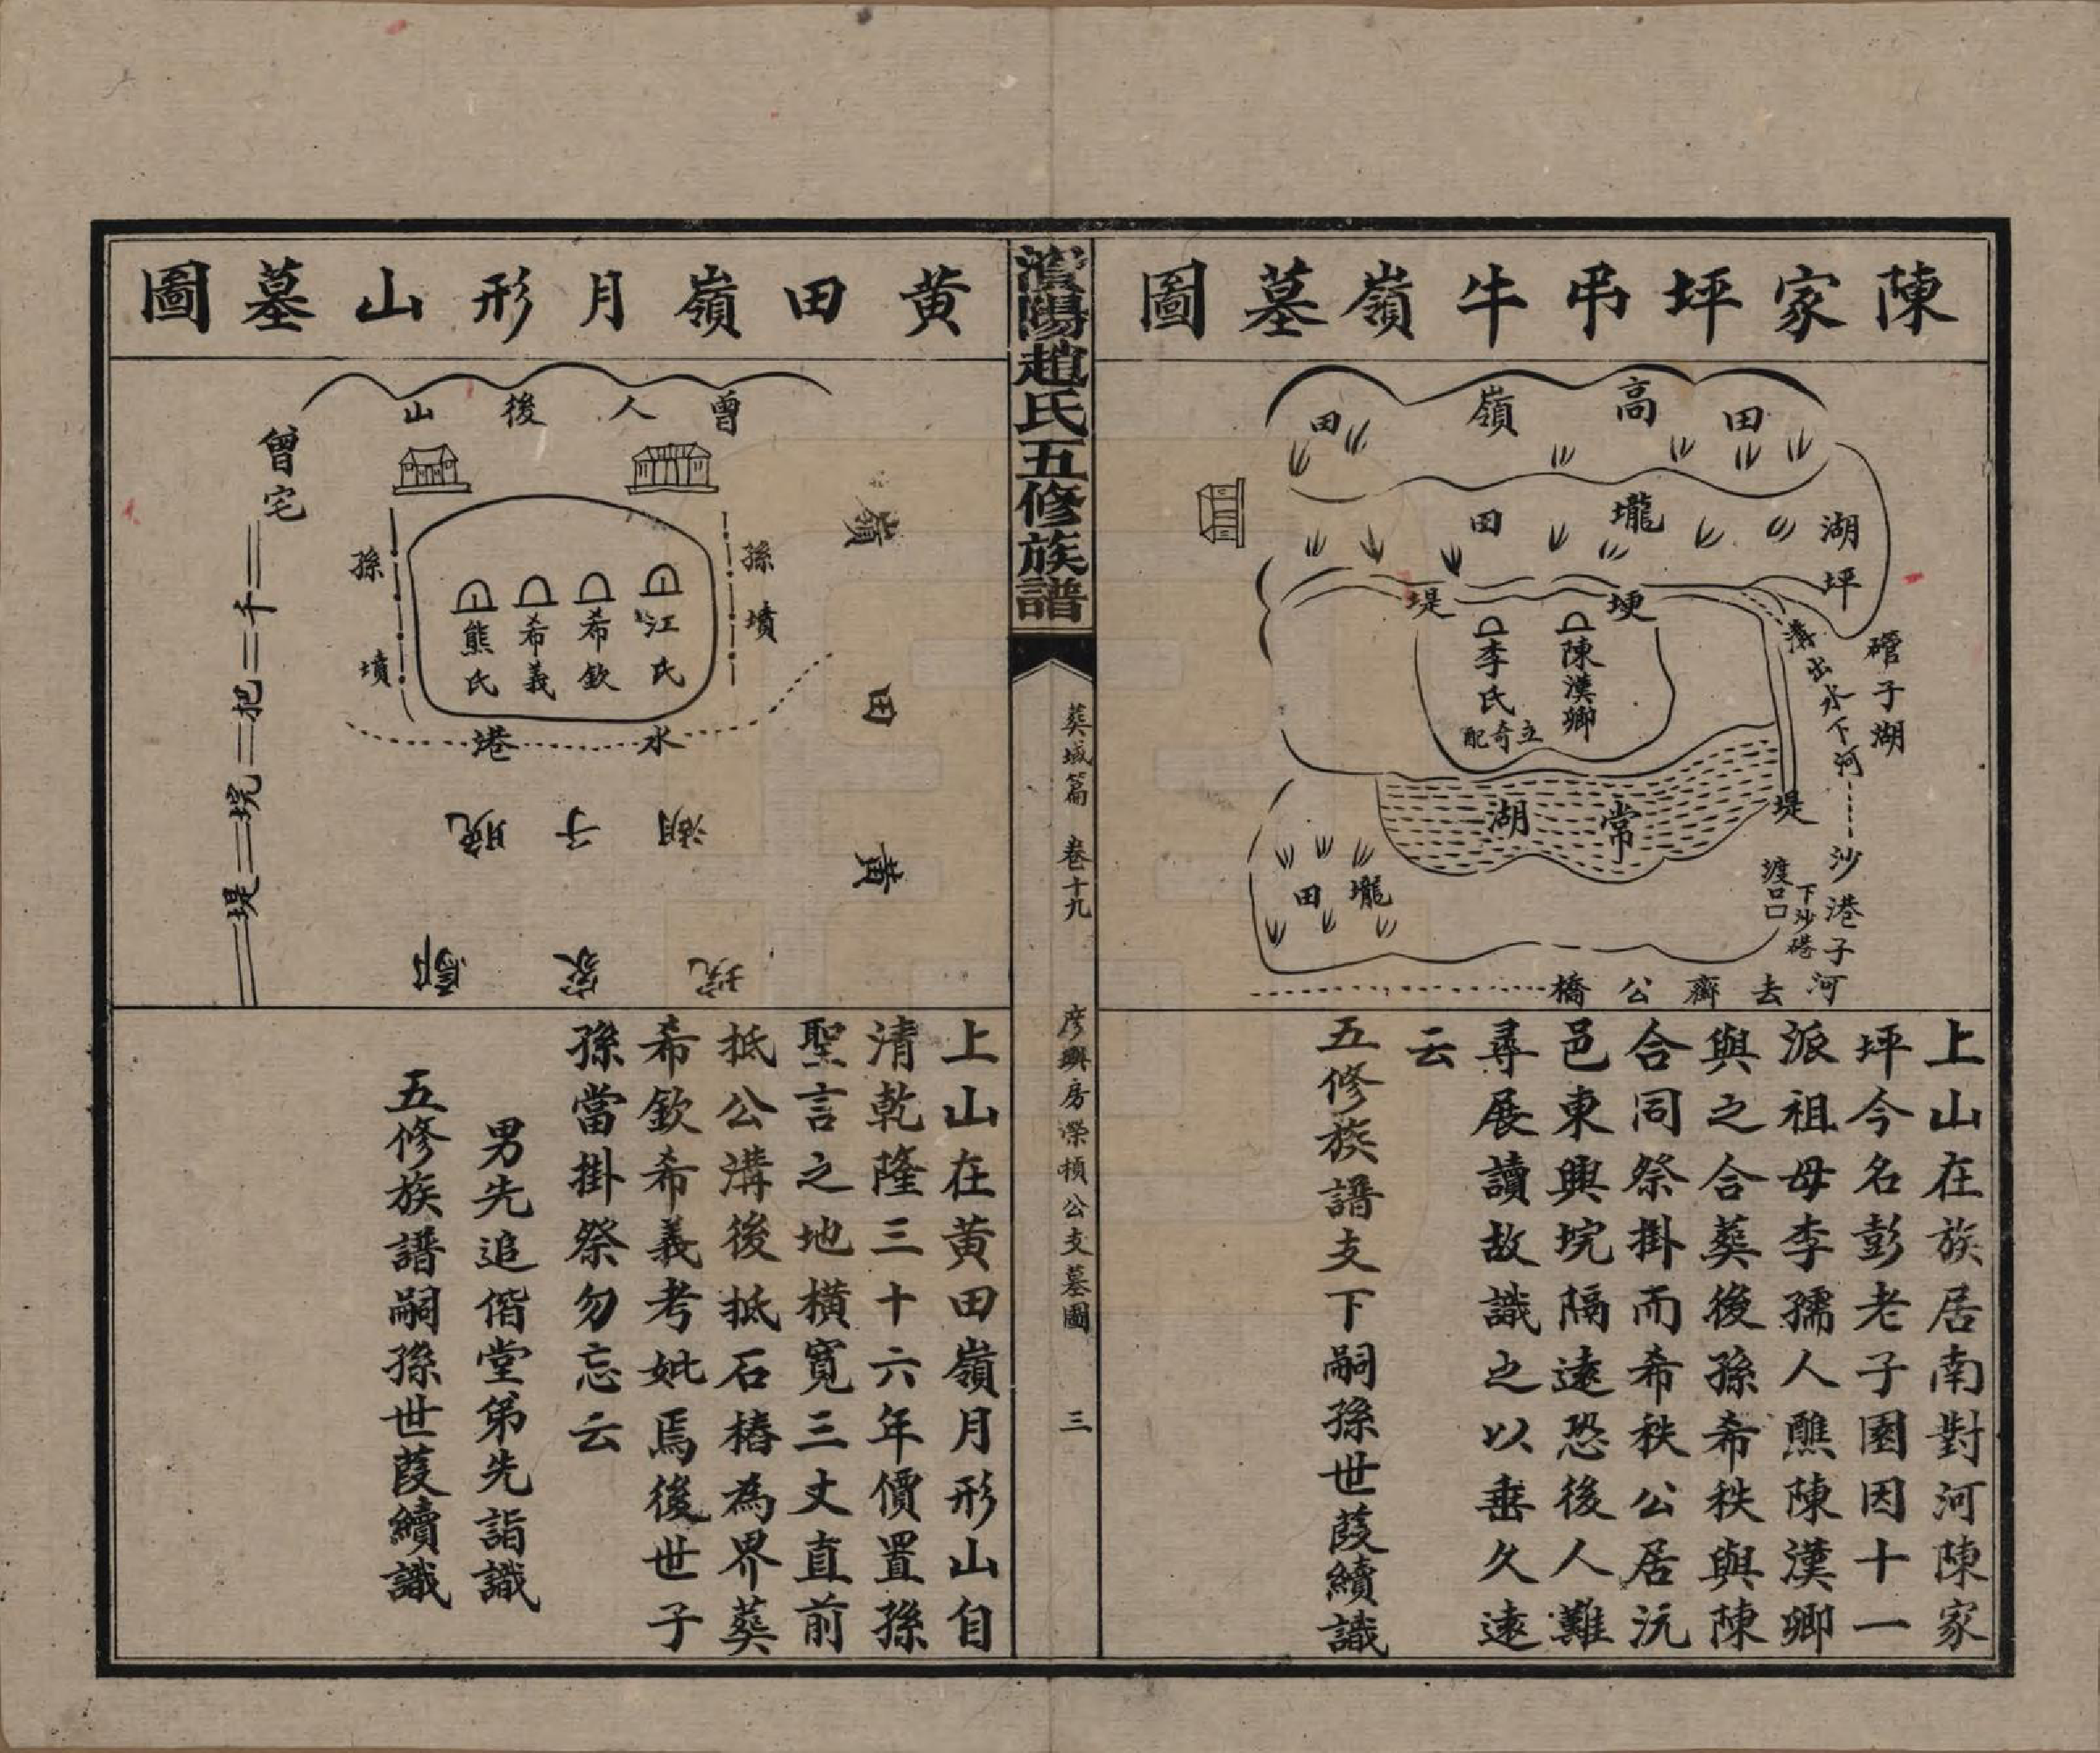 陳家坪弔牛嶺墓圖
田 高 嶺 田
壠 田
湖坪
堤 埂
陳漢卿
李氏
立奇配
溝出水下河
礶子湖
常湖
堤
沙港子河
下沙港
渡口
壠田
去齊公橋
上山在族居南對河陳家
坪今名彭老子園因十一
派祖母李孺人醮陳漢卿
與之合葵後孫希秩與陳
合同祭掛而希秩公居沅
邑東興垸隔遠恐後人難
尋展讀故識之以垂久遠
云
五修族譜支下嗣孫世葭續識
趙氏五修族譜
葵域篇 卷十九 彦興房榮楨公支墓圖 三
黄田嶺月形山墓圖
曾人後山
曾宅
孫墳
孫墳
江氏
希欽
希義
熊氏
水港
黄田嶺
湖子
家
千把垸堤
上山在黄田嶺月形山自
清乾隆三十六年價置孫
聖言之地橫寛三丈直前
抵公溝後抵石樁為界葵
希欽希義考妣焉後世子
孫當掛祭勿忘云
男先追偕堂弟先詣識
五修族譜嗣孫世葭續識